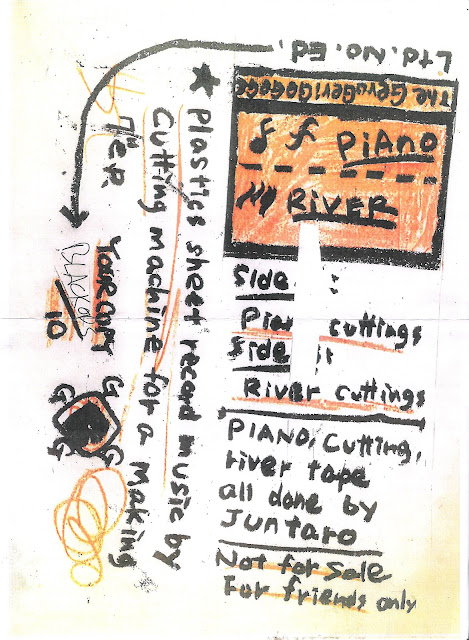 Ltd. NO. Ed.
The GeroGeriGeGeGe
PIANO
RIVER
Side :
Pia cuttings
Side :
River cuttings
PIANO, Cutting,
river tape
all done by
Juntaro
Not for Sale
For friends only
★ Plastics sheet record music by
Cutting machine for a making
7" EP.
YOUR COPY
10
G G G G